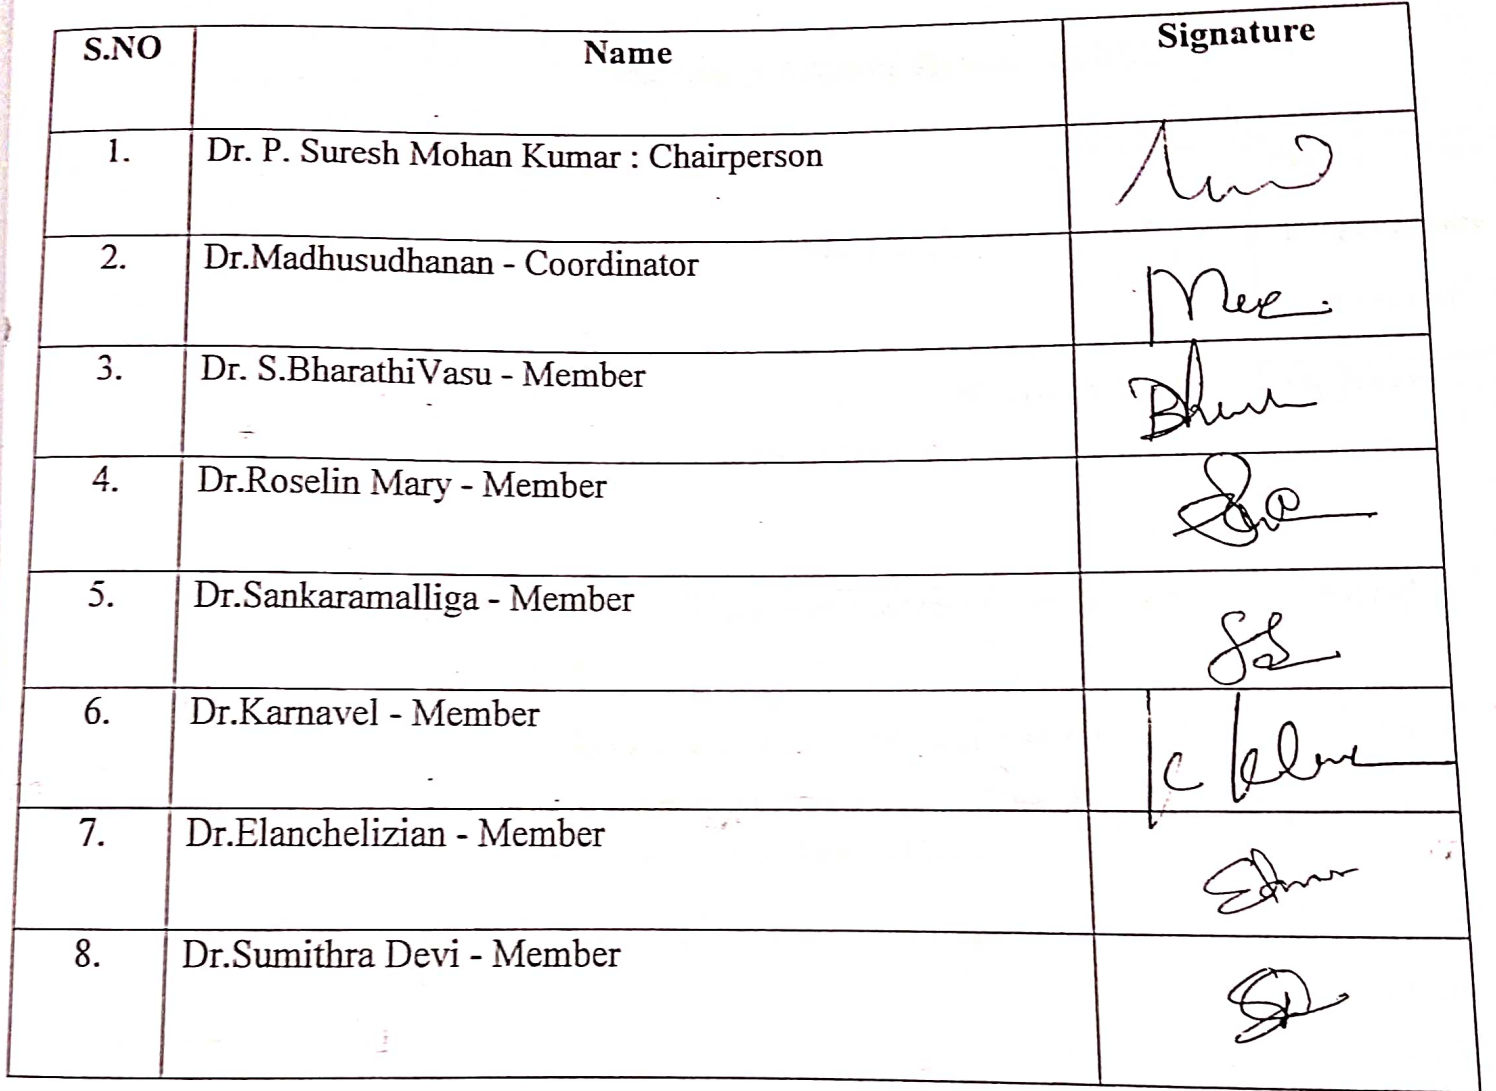 S.NO Name Signature
1. Dr. P. Suresh Mohan Kumar : Chairperson
2. Dr.Madhusudhanan - Coordinator
3. Dr. S.BharathiVasu - Member
4. Dr.Roselin Mary - Member
5. Dr.Sankaramalliga - Member
6. Dr.Karnavel - Member
7. Dr.Elanchelizian - Member
8. Dr.Sumithra Devi - Member